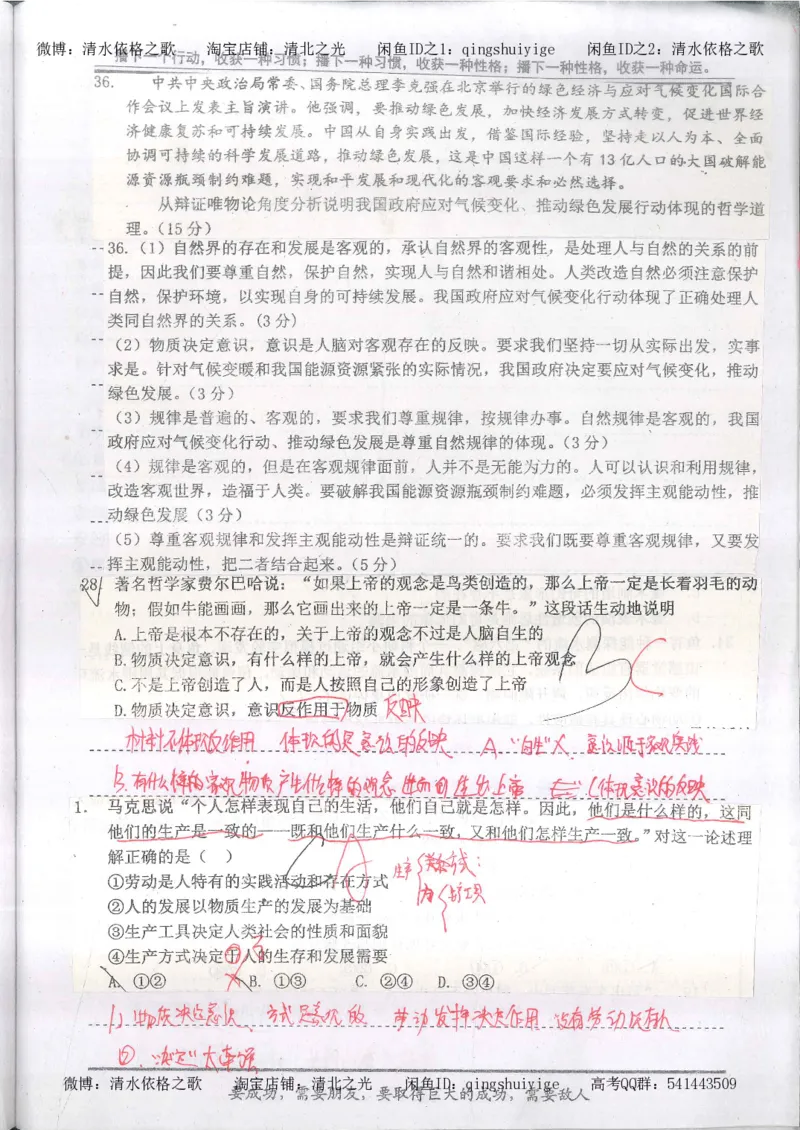 微博：清水依格之歌 淘宝店铺：清北之光 闲鱼ID之1：qingshuiyige 闲鱼ID之2：清水依格之歌
播下一个行动，收获一种习惯；播下一种习惯，收获一种性格；播下一种性格，收获一种命运。
36. 中共中央政治局常委、国务院总理李克强在北京举行的绿色经济与应对气候变化国际合
作会议上发表主旨演讲。他强调，要推动绿色发展，加快经济发展方式转变，促进世界经
济健康复苏和可持续发展。中国从自身实践出发，借鉴国际经验，坚持走以人为本、全面
协调可持续的科学发展道路，推动绿色发展，这是中国这样一个有 13 亿人口的大国破解能
源资源瓶颈制约难题，实现和平发展和现代化的客观要求和必然选择。
从辩证唯物论角度分析说明我国政府应对气候变化、推动绿色发展行动体现的哲学道
理。（15 分）
36.（1）自然界的存在和发展是客观的，承认自然界的客观性，是处理人与自然的关系的前
提，因此我们要尊重自然，保护自然，实现人与自然和谐相处。人类改造自然必须注意保护
自然，保护环境，以实现自身的可持续发展。我国政府应对气候变化行动体现了正确处理人
类同自然界的关系。(3 分)
（2）物质决定意识，意识是人脑对客观存在的反映。要求我们坚持一切从实际出发，实事
求是。针对气候变暖和我国能源资源紧张的实际情况，我国政府决定要应对气候变化，推动
绿色发展。（3 分）
（3）规律是普遍的、客观的，要求我们尊重规律，按规律办事。自然规律是客观的，我国
政府应对气候变化行动、推动绿色发展是尊重自然规律的体现。（3 分）
（4）规律是客观的，但是在客观规律面前，人并不是无能为力的。人可以认识和利用规律，
改造客观世界，造福于人类。要破解我国能源资源瓶颈制约难题，必须发挥主观能动性，推
动绿色发展（3 分）
（5）尊重客观规律和发挥主观能动性是辩证统一的。要求我们既要尊重客观规律，又要发
挥主观能动性，把二者结合起来。（5 分）
28 著名哲学家费尔巴哈说：“如果上帝的观念是鸟类创造的，那么上帝一定是长着羽毛的动
物；假如牛能画画，那么它画出来的上帝一定是一条牛。”这段话生动地说明
A.上帝是根本不存在的，关于上帝的观念不过是人脑自生的
B.物质决定意识，有什么样的上帝，就会产生什么样的上帝观念
C.不是上帝创造了人，而是人按照自己的形象创造了上帝
D.物质决定意识，意识反作用于物质 反映
材料不体现反作用 体现的是意识的反映 A."自生"X 意识源于客观实践
B.有什么样的客观物质产生什么样的观念
1. 马克思说“个人怎样表现自己的生活，他们自己就是怎样。因此，他们是什么样的，这同
他们的生产是一致的——既和他们生产什么一致，又和他们怎样生产一致。”对这一论述理
解正确的是（ ）
①劳动是人特有的实践活动和存在方式
②人的发展以物质生产的发展为基础
③生产工具决定人类社会的性质和面貌
④生产方式决定了人的生存和发展需要
A. ①② B. ①③ C. ②④ D. ③④
物质决定意识、方式是客观的
④."决定"太牵强
微博：清水依格之歌 淘宝店铺：清北之光 闲鱼ID：qingshuiyige 高考QQ群：541443509
要成功，需要朋友，要取得巨大的成功，需要敌人